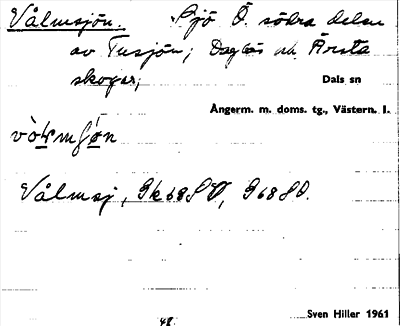 Vålmsjön. Sjö Ö. södra delen
av Tusjön; Dagbäs och Ärsta
skogar;
Dals sn
Ångerm. m. doms. tg., Västern. l.
Vålmsj, Gk68SV, G68SO.
48.
Sven Hiller 1961